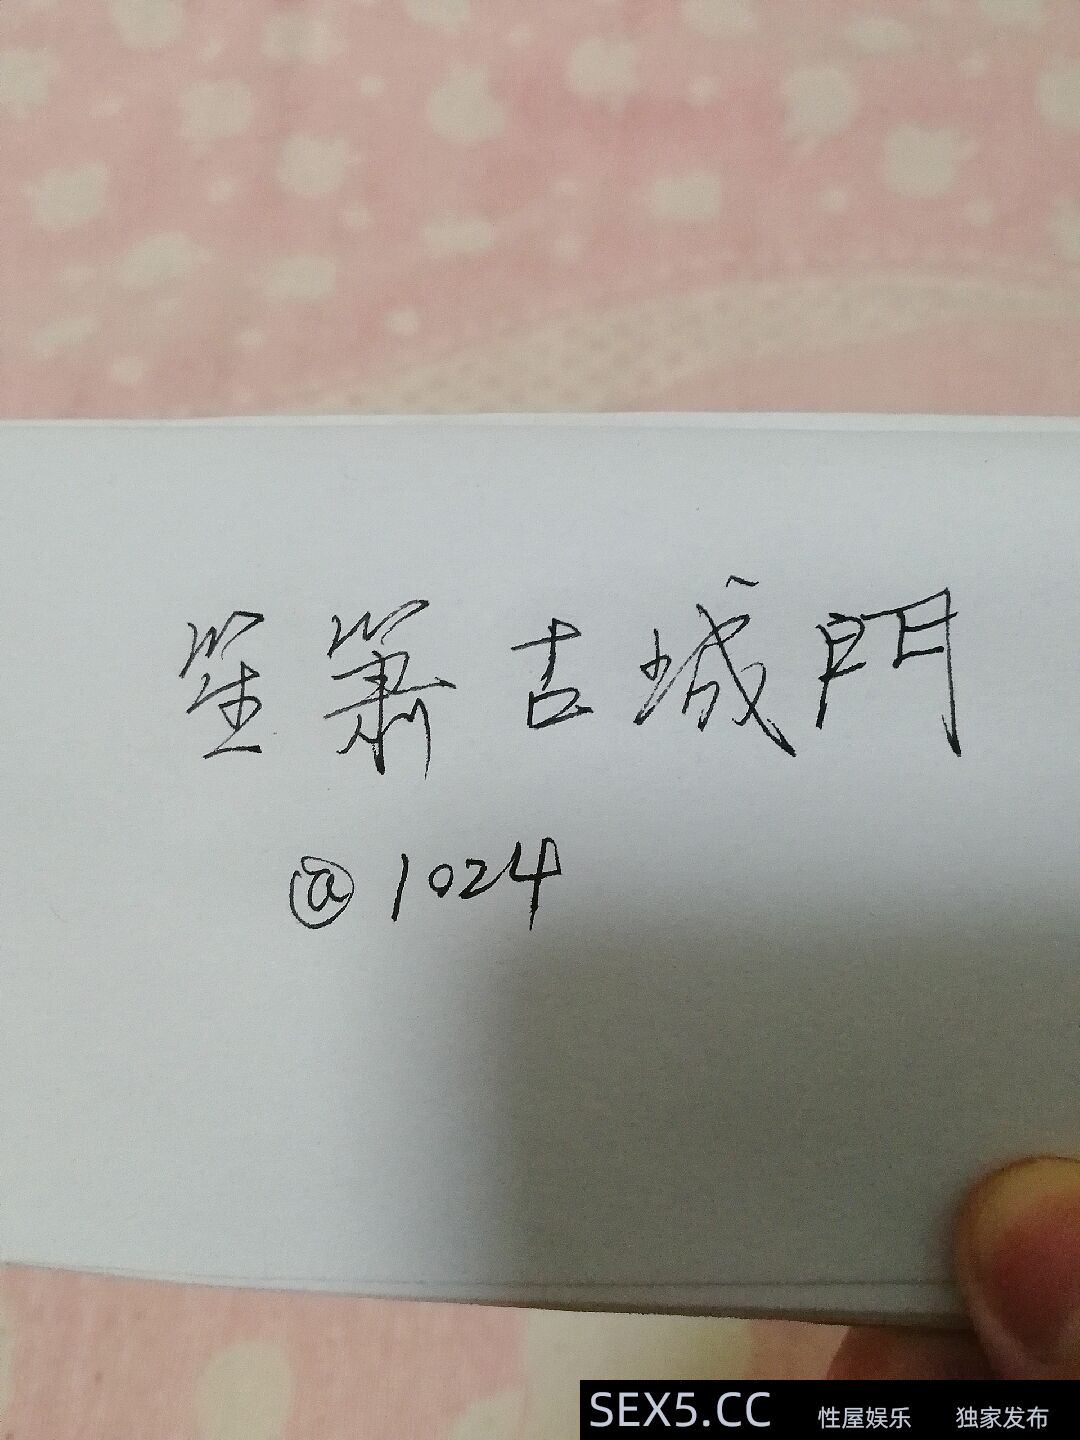 笙箫古城門
@1024
SEX5.CC 性屋娱乐 独家发布